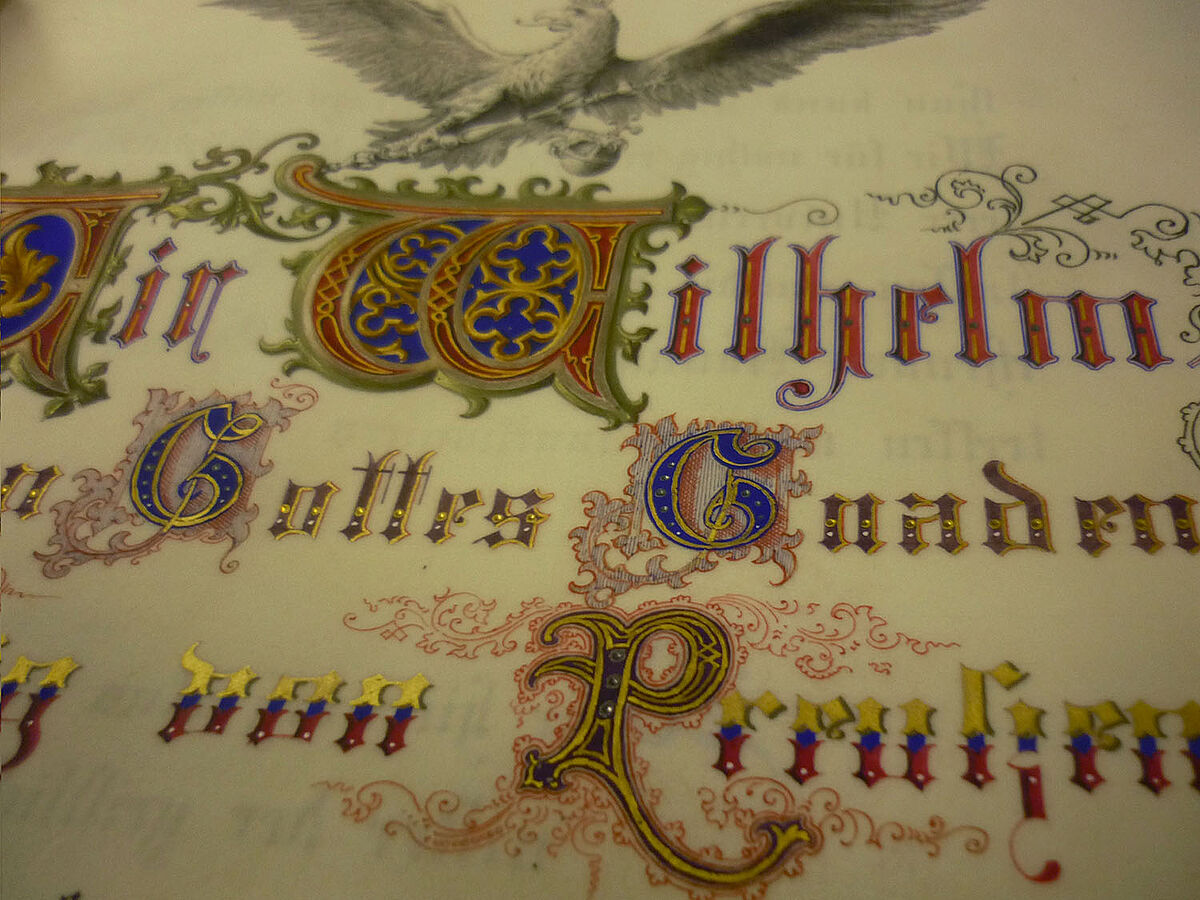 Wir Wilhelm
Gottes Gnaden
von Preußen